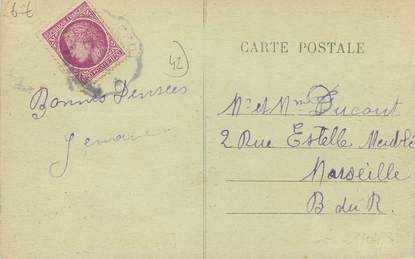 66
42
CARTE POSTALE
Bonnes Pensées
Mr et Mme Ducout
2 Rue Estelle
Marseille
B du R.